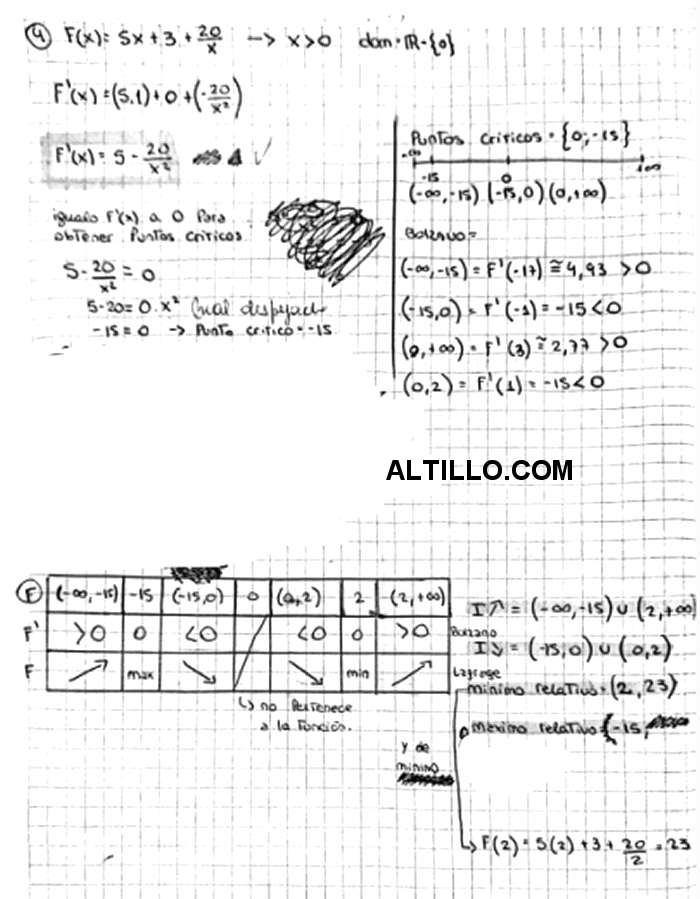 ④ F(x) = 5x + 3 + 20/x → x>0 dom = R - {0}
F'(x) = (5.1) + 0 + (-20/x²)
F'(x) = 5 - 20/x² ✓
igualo F'(x) a 0 para
obtener puntos criticos
5 - 20/x² = 0
5 - 20 = 0 . x² (mal despejado
-15 = 0 → Punto critico = -15
Puntos criticos = {0; -15}
-∞ -15 0 +∞
(-∞, -15) (-15, 0) (0, +∞)
Bolzano =
(-∞, -15) = F'(-17) ≅ 4,93 >0
(-15, 0) = F'(-1) = -15 <0
(0, +∞) = F'(3) ≅ 2,77 >0
(0, 2) = F'(1) = -15 <0
ALTILLO.COM
F (-∞, -15) -15 (-15, 0) 0 (0, 2) 2 (2, +∞)
F' >0 0 <0 <0 0 >0 Bolzano
F ↗ max ↘ ↘ min ↗ Lagrange
↳ no pertenece
a la función.
I↗ = (-∞, -15) ∪ (2, +∞)
I↘ = (-15, 0) ∪ (0, 2)
minimo relativo = (2, 23)
maximo relativo = (-15,
y de
minimo
F(2) = 5(2) + 3 + 20/2 = 23